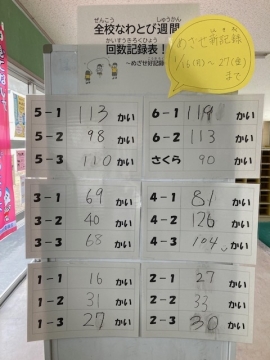 ぜんこう しゅうかん
全校なわとび週間
かいすうきろくひょう
回数記録表!
～めざせ好記録
めざせ新記録
1/16(月)～27(金)
まで
5-1 113 かい
5-2 98 かい
5-3 110 かい
6-1 かい
6-2 113 かい
さくら 90 かい
3-1 69 かい
3-2 40 かい
3-3 68 かい
4-1 81 かい
4-2 126 かい
4-3 104 かい
1-1 16 かい
1-2 31 かい
1-3 27 かい
2-1 27 かい
2-2 33 かい
2-3 30 かい